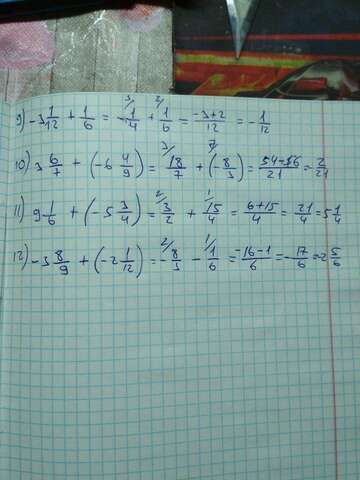 9) -3 1/12 + 1/6 = 3/ -1/4 + 2/ 1/6 = -3+2/12 = -1/12
10) 3 6/7 + (-6 4/9) = 3/ 18/7 + (-8/3) = 54-56/21 = 2/21
11) 9 1/6 + (-5 3/4) = 2/ 3/2 + 1/ 15/4 = 6+15/4 = 21/4 = 5 1/4
12) -3 8/9 + (-2 1/12) = 2/ -8/3 - 1/ 1/6 = -16-1/6 = -17/6 = -2 5/6